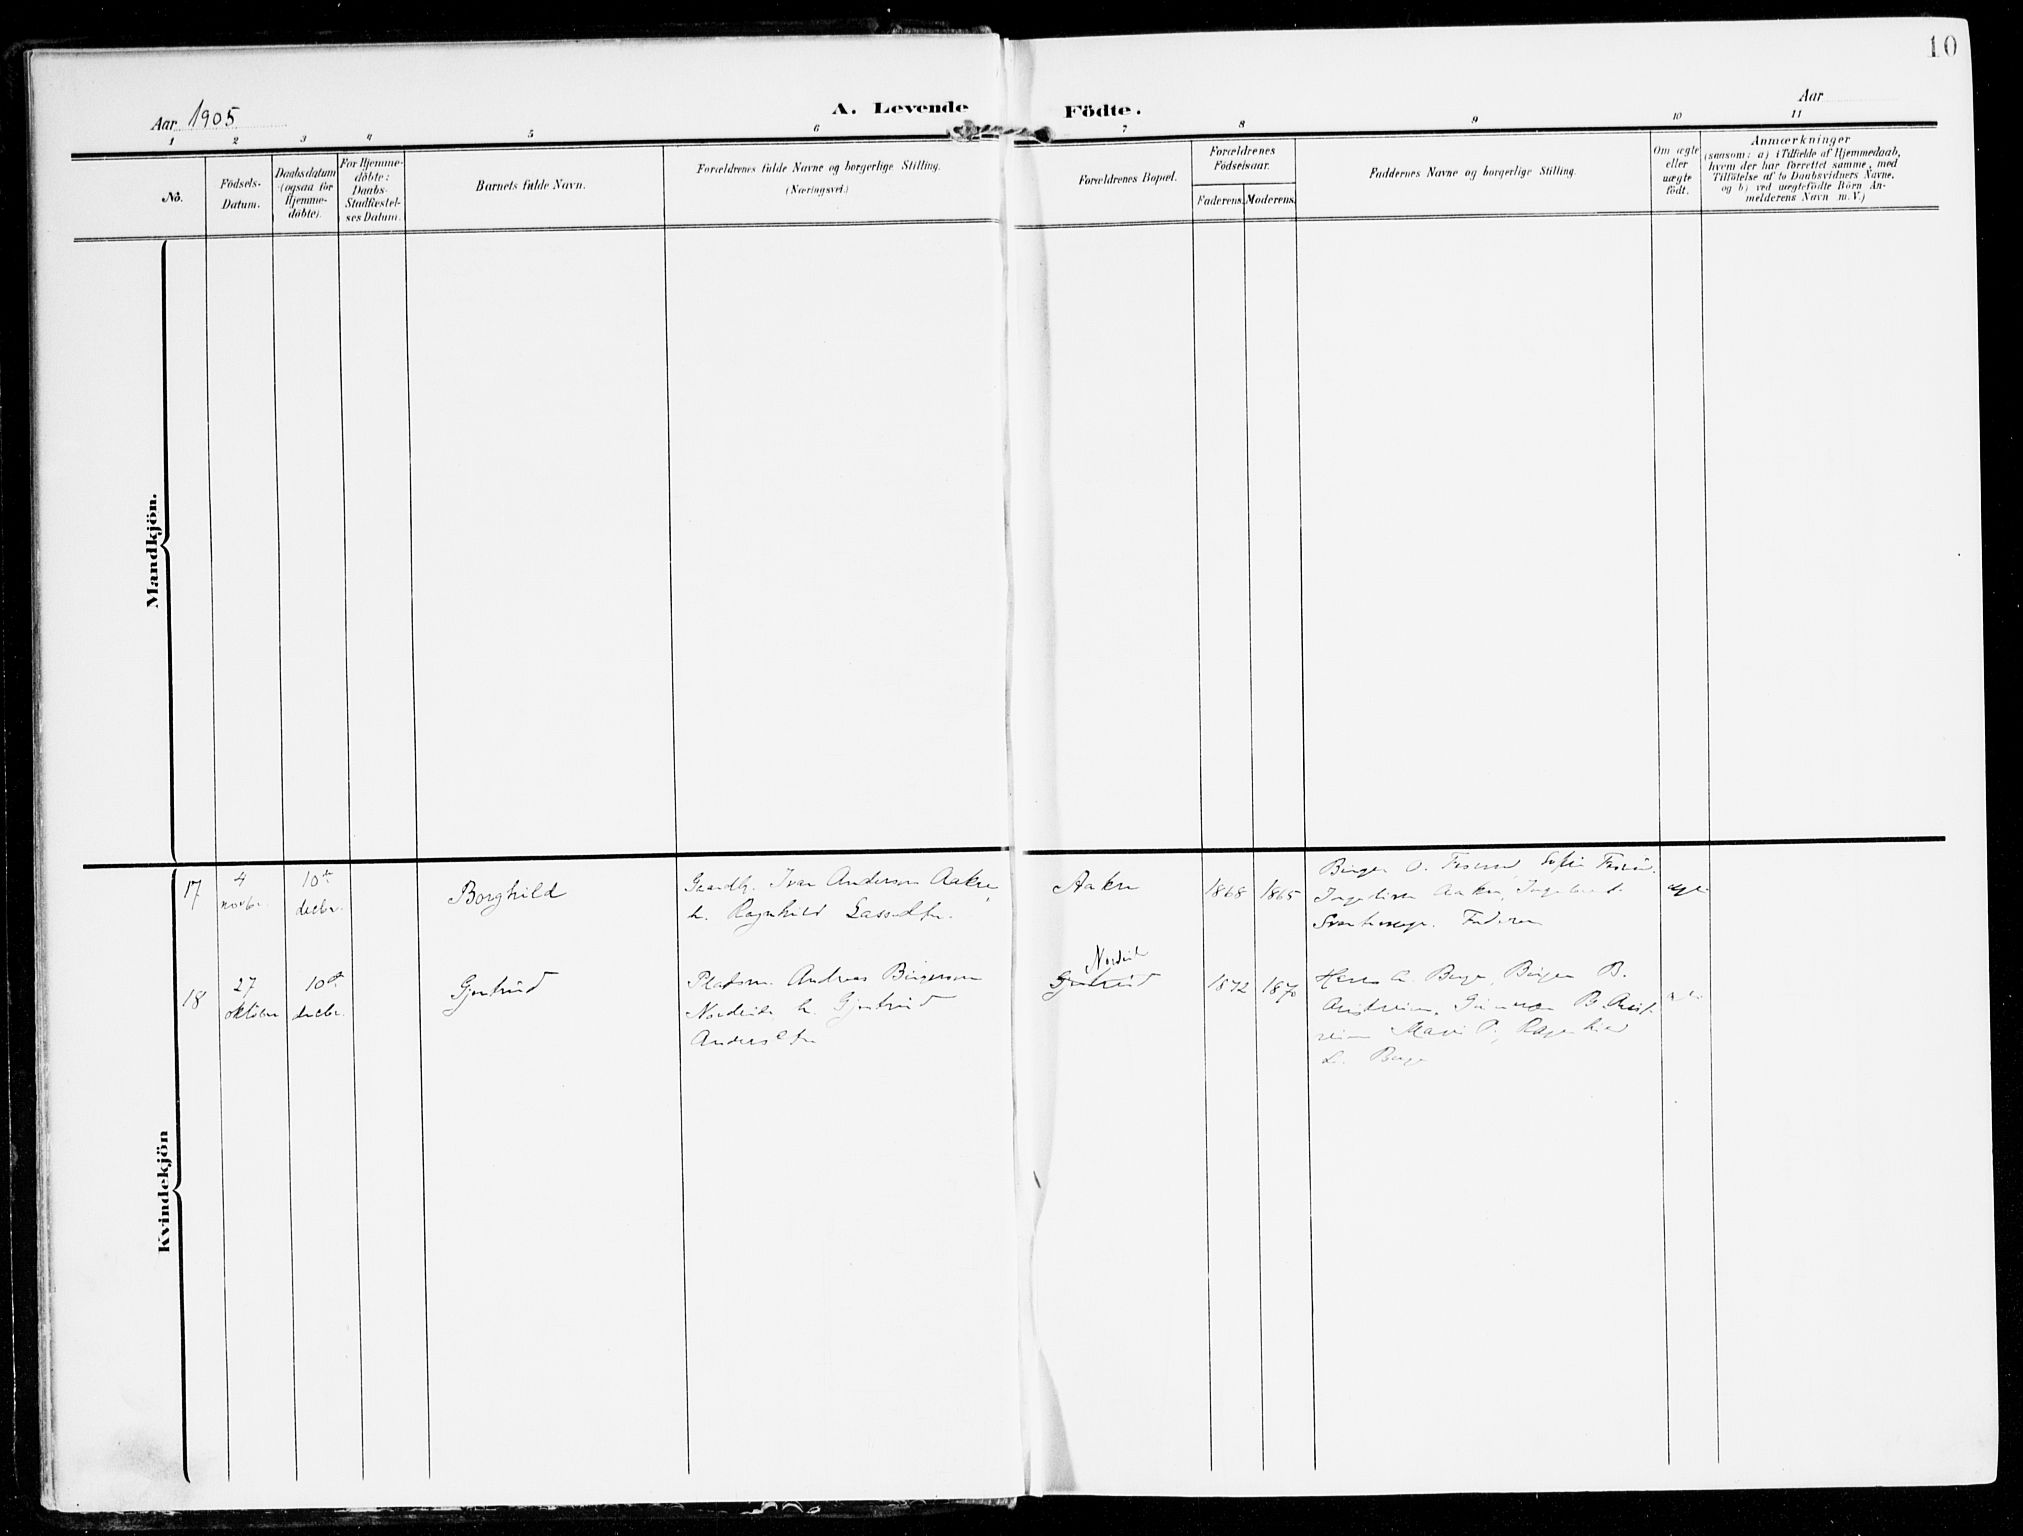 10
Aar 1905
A. Levende Födte.
Aar
1 2 3 4 5 6 7 8 9 10 11
No.
Födsels-Datum.
Daabsdatum (ogsaa for Hjemme-döbte).
For Hjemme-döbte: Daabs-Stadfæstel-ses Datum.
Barnets fulde Navn.
Forældrenes fulde Navne og borgerlige Stilling.
(Næringsvei.)
Forældrenes Bopæl.
Forældrenes Födselsaar.
Faderens. Moderens.
Faddernes Navne og borgerlige Stilling.
Om ægte eller uægte födt.
Anmærkninger
(saasom: a) i Tilfælde af Hjemmedaab,
hvem der har forrettet samme, med
Tilföielse af to Daabsvidners Navne,
og b) ved uægtefödte Börn An-
melderens Navn m.V.)
Mandkjön.
Kvindekjön
17
4 novbr.
10de decbr.
Borghild
Gaardb. Ivar Anderson Aakre,
h. Ragnhild Lassesdtr.
Aakre
1868 1865
Birger O. Sofie
Ingeborg
Faderen
ægte
18
27 oktober
10de decbr.
Gjertrud
Pladsm. Andreas Birgerson
Nordvik h. Gjertrud
Andersdtr
Nordvik
Gjertrud
1872 1870
Berge, Birger B.
B.
Ragnhild
Berge